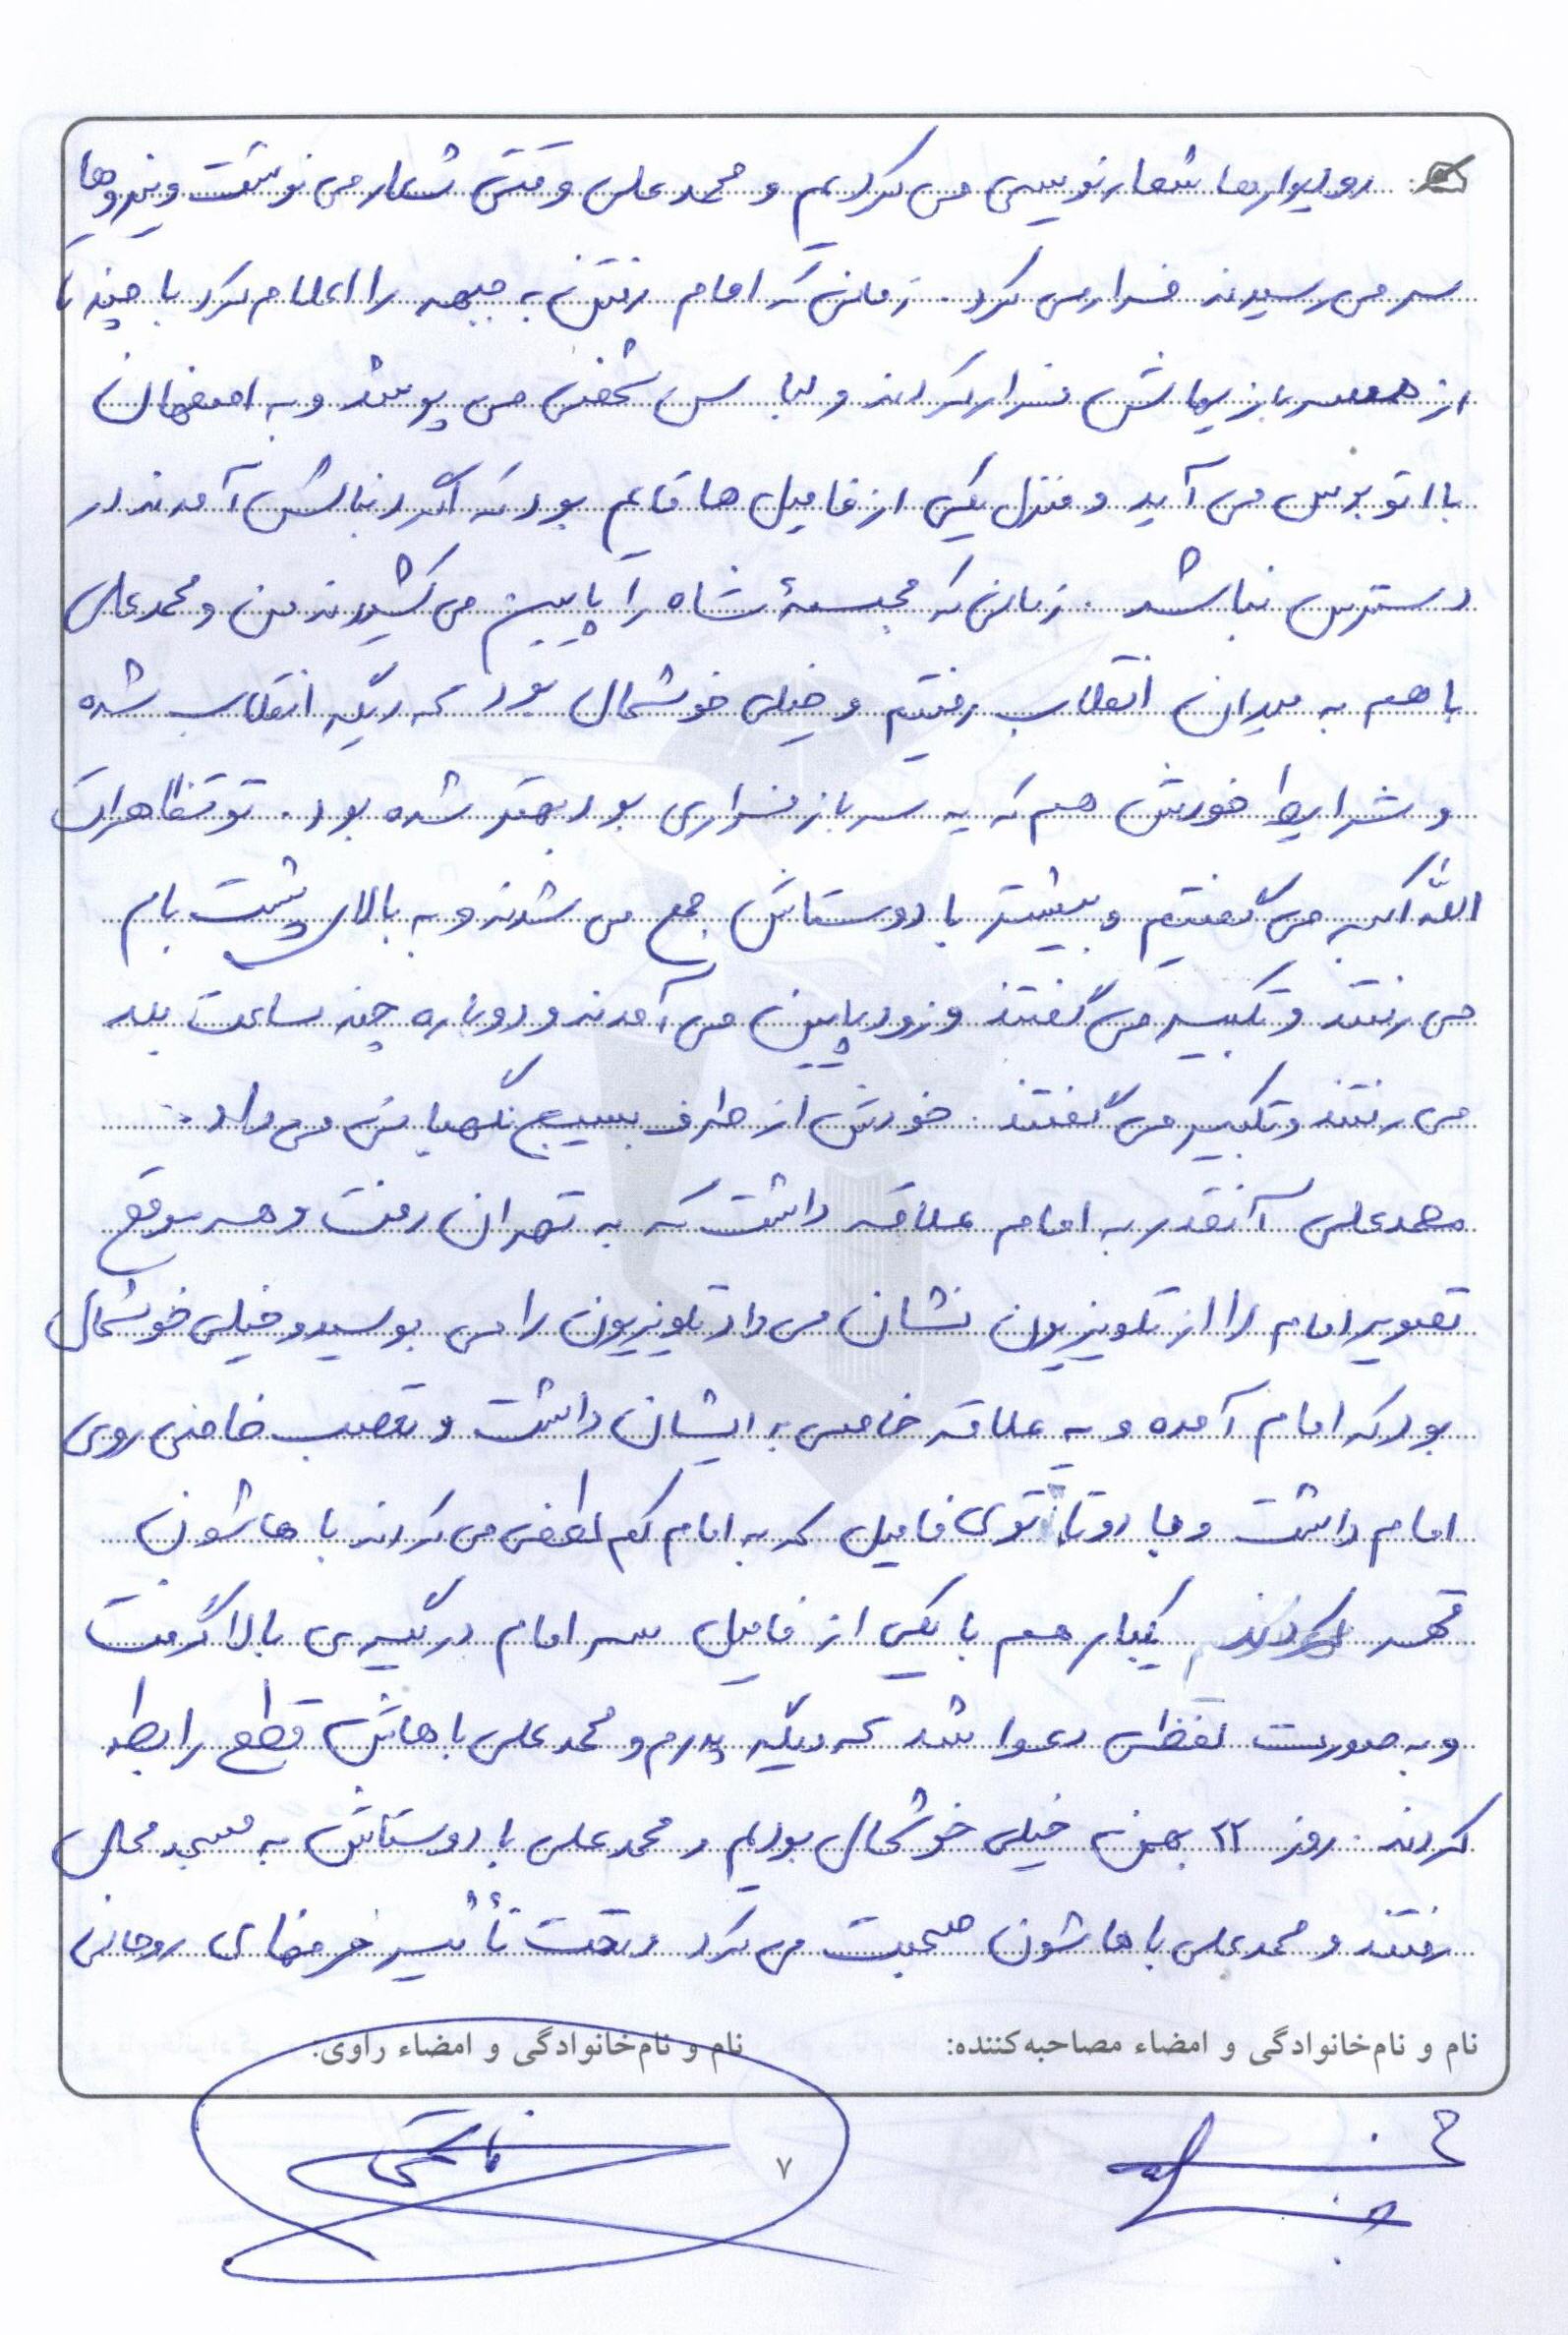 رو دیوارها شعارنویسی می کردیم و محمدعلی وقتی شعار می نوشت و نیروها
سر می رسیدند فرار می کرد. زمانی که امام رفتن به جبهه را اعلام کرد با چند تا
از هم سربازیهاش فرار کردند و لباس شخصی می پوشد و به اصفهان
با اتوبوس می آید و منزل یکی از فامیل ها قایم بود که اگر دنبالش آمدند در
دسترس نباشد. زمانی که مجسمهٔ شاه را پایین می کشیدند من و محمدعلی
با هم به میدان انقلاب رفتیم و خیلی خوشحال بود که دیگه انقلاب شده
و شرایط خودش هم که یه سرباز فراری بود بهتر شده بود. تو تظاهرات
الله اکبر می گفتیم و بیشتر با دوستاش جمع می شدند و به بالای پشت بام
می رفتند و تکبیر می گفتند و زود پایین می آمدند و دوباره چند ساعت بعد
می رفتند و تکبیر می گفتند. خودش از طرف بسیج نگهبانی می داد.
محمدعلی آنقدر به امام علاقه داشت که به تهران رفت و هر موقع
تصویر امام را از تلویزیون نشان می داد تلویزیون را می بوسید و خیلی خوشحال
بود که امام آمده و یه علاقه خاصی به ایشان داشت و تعصب خاصی روی
امام داشت و با دوتا توی فامیل که به امام کم لطفی می کردند باهاشون
قهر کردند یکبار هم با یکی از فامیل سر امام درگیری بالا گرفت
و به صورت لفظی دعوا شد که دیگه پدرم و محمدعلی باهاش قطع رابطه
کردند. روز ۲۲ بهمن خیلی خوشحال بودیم و محمدعلی با دوستاش به مسجد محل
رفتند و محمدعلی باهاشون صحبت می کرد و تحت تأثیر حرفهای روحانی
نام و نام‌خانوادگی و امضاء مصاحبه‌کننده:
نام و نام‌خانوادگی و امضاء راوی:
۷